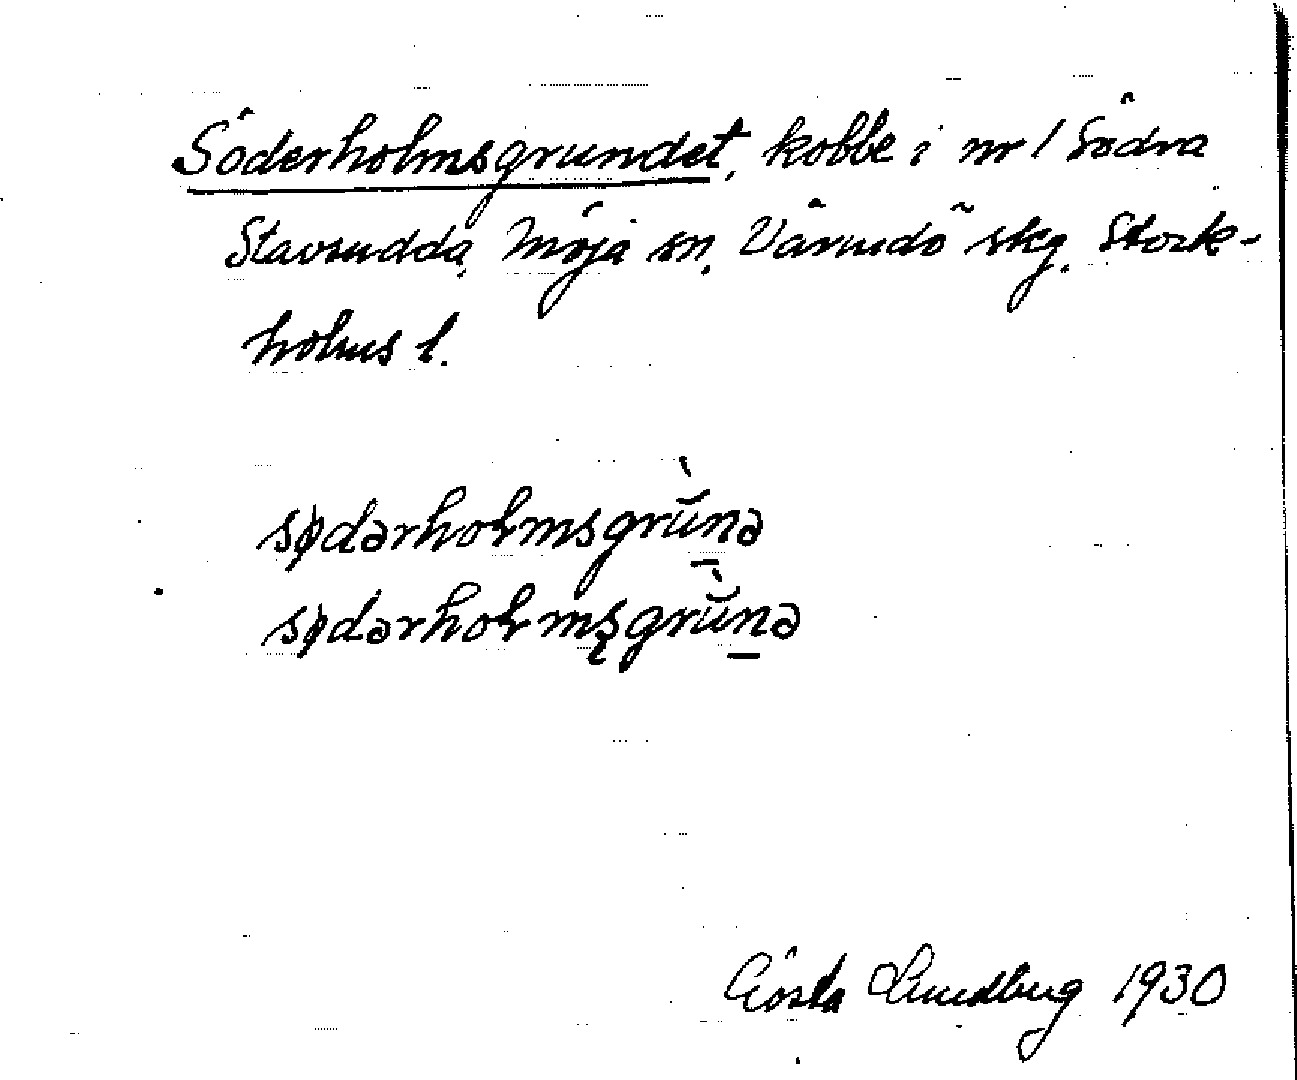 Söderholmsgrundet, kobbe i nr 1 Södra
Stavsudda, Möja sn, Värmdö skg, Stock-
holms l.
sødərholmsgrŭ̀nə
sødərholmşgrŭ̀n̲ə
Gösta Lundberg 1930